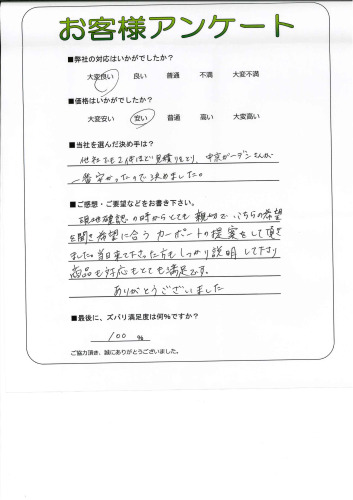 お客様アンケート
■弊社の対応はいかがでしたか？
大変良い 良い 普通 不満 大変不満
■価格はいかがでしたか？
大変安い 安い 普通 高い 大変高い
■当社を選んだ決め手は？
他社でも2件ほど見積りをとり、中京ガーデンさんが
一番安かったので決めました。
■ご感想・ご要望などをお書き下さい。
現地確認の時からとても親切で、こちらの希望
を聞き希望に合うカーポートの提案をして頂き
ました。当日来て下さった方もしっかり説明して下さり
商品も対応もとても満足です。
ありがとうございました
■最後に、ズバリ満足度は何%ですか？
100 %
ご協力頂き、誠にありがとうございました。